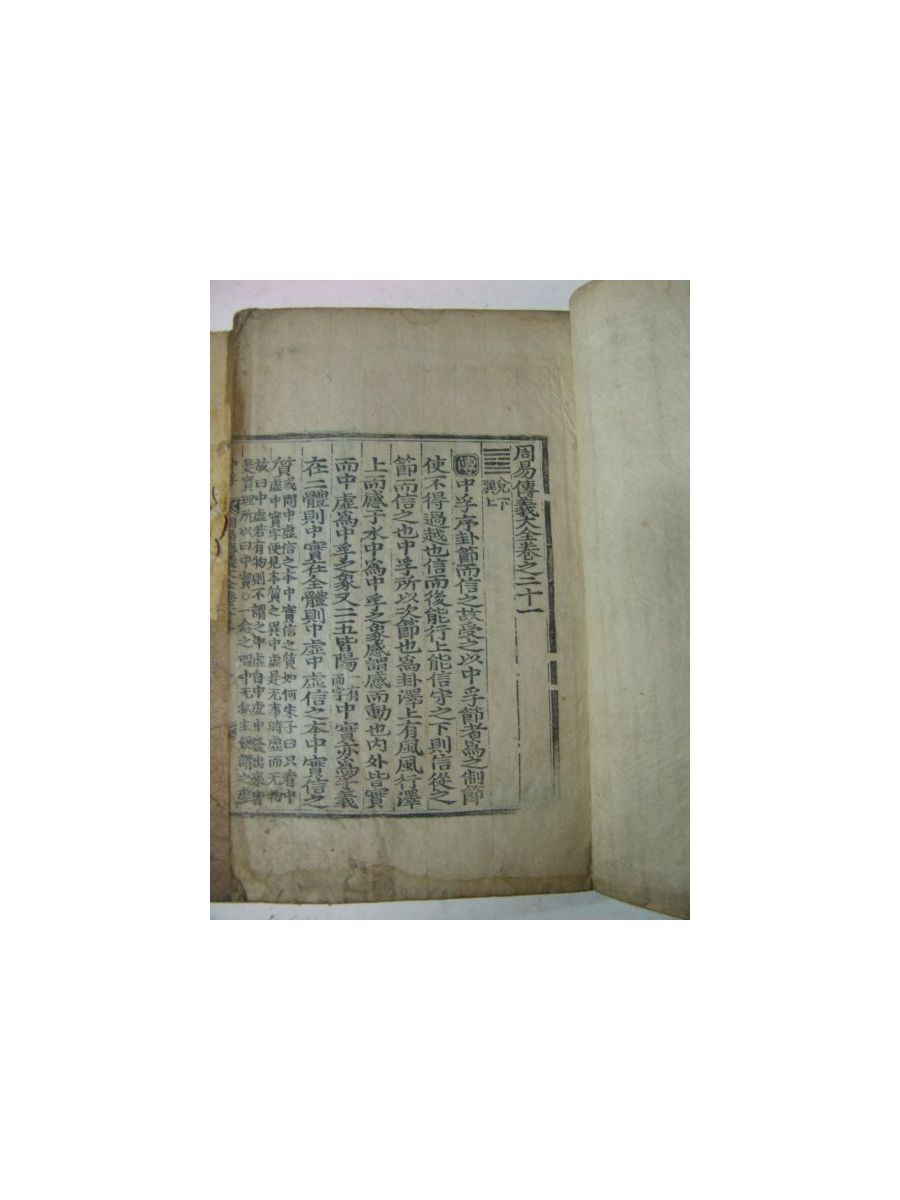 周易傳義大全卷之二十一
䷼ 兌下 巽上
傳 中孚序卦節而信之故受之以中孚節者爲之制節
使不得過越也信而後能行上能信守之下則信從之
節而信之也中孚所以次節也爲卦澤上有風風行澤
上而感于水中爲中孚之象感謂感而動也內外皆實
而中虛爲中孚之象又二五皆陽一有而字中實亦爲孚義
在二體則中實在全體則中虛中虛信之本中實信之
質 或問中虛信之本中實信之質如何朱子曰只看中
虛中實字便見本質之異中虛是无事時虛而无物
故曰中虛若有物則不謂之中虛自中虛中發出來皆
是實理所以曰中實○一念之間中无私主便謂之虛